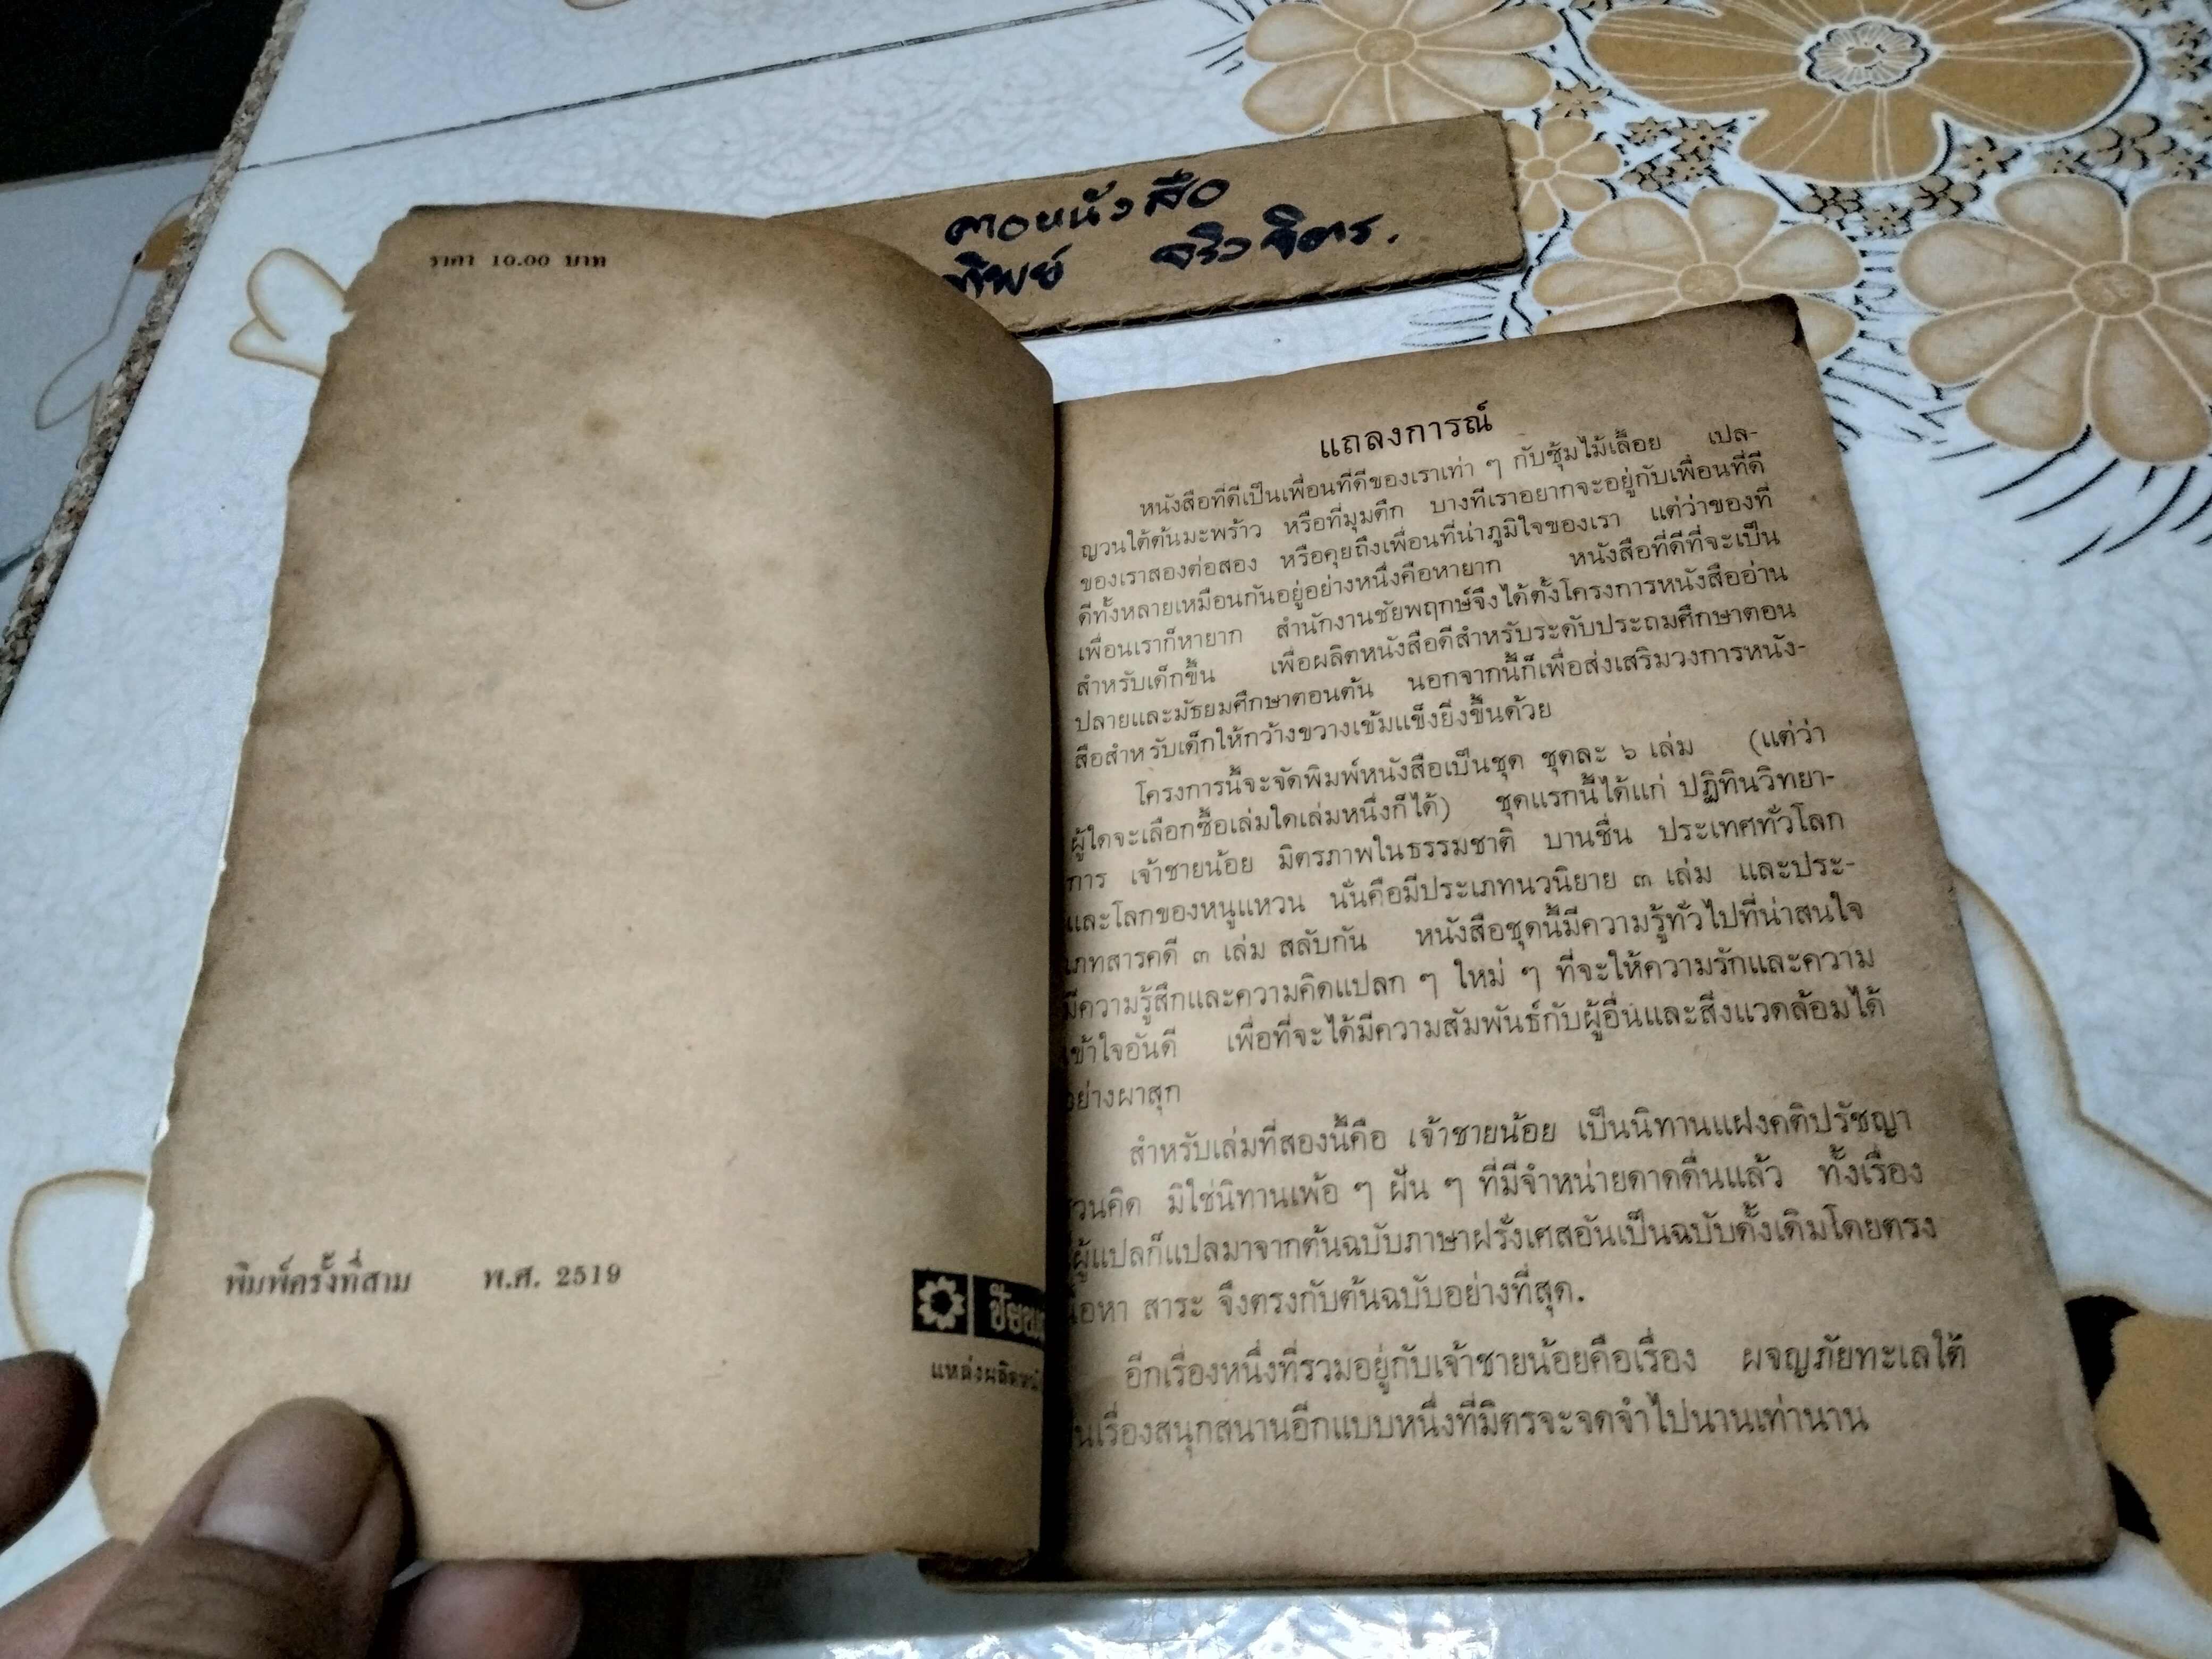 ราคา 10.00 บาท
พิมพ์ครั้งที่สาม พ.ศ. 2519
แหล่งผลิต
หนังสือ
ทิพย์ จริงจิตร.
แถลงการณ์
หนังสือที่ดีเป็นเพื่อนที่ดีของเราเท่า ๆ กับซุ้มไม้เลื้อย เปล-
ญวนใต้ต้นมะพร้าว หรือที่มุมตึก บางทีเราอยากจะอยู่กับเพื่อนที่ดี
ของเราสองต่อสอง หรือคุยถึงเพื่อนที่น่าภูมิใจของเรา แต่ว่าของที่
ดีทั้งหลายเหมือนกันอยู่อย่างหนึ่งคือหายาก หนังสือที่ดีที่จะเป็น
เพื่อนเราก็หายาก สำนักงานชัยพฤกษ์จึงได้ตั้งโครงการหนังสืออ่าน
สำหรับเด็กขึ้น เพื่อผลิตหนังสือดีสำหรับระดับประถมศึกษาตอน
ปลายและมัธยมศึกษาตอนต้น นอกจากนี้ก็เพื่อส่งเสริมวงการหนัง-
สือสำหรับเด็กให้กว้างขวางเข้มแข็งยิ่งขึ้นด้วย
โครงการนี้จะจัดพิมพ์หนังสือเป็นชุด ชุดละ ๖ เล่ม (แต่ว่า
ผู้ใดจะเลือกซื้อเล่มใดเล่มหนึ่งก็ได้) ชุดแรกนี้ได้แก่ ปฏิทินวิทยา-
การ เจ้าชายน้อย มิตรภาพในธรรมชาติ บานชื่น ประเทศทั่วโลก
และโลกของหนูแหวน นั่นคือมีประเภทนวนิยาย ๓ เล่ม และประ-
เภทสารคดี ๓ เล่ม สลับกัน หนังสือชุดนี้มีความรู้ทั่วไปที่น่าสนใจ
มีความรู้สึกและความคิดแปลก ๆ ใหม่ ๆ ที่จะให้ความรักและความ
เข้าใจอันดี เพื่อที่จะได้มีความสัมพันธ์กับผู้อื่นและสิ่งแวดล้อมได้
อย่างผาสุก
สำหรับเล่มที่สองนี้คือ เจ้าชายน้อย เป็นนิทานแฝงคติปรัชญา
ชวนคิด มิใช่นิทานเพ้อ ๆ ฝัน ๆ ที่มีจำหน่ายดาดดื่นแล้ว ทั้งเรื่อง
ผู้แปลก็แปลมาจากต้นฉบับภาษาฝรั่งเศสอันเป็นฉบับดั้งเดิมโดยตรง
เนื้อหา สาระ จึงตรงกับต้นฉบับอย่างที่สุด.
อีกเรื่องหนึ่งที่รวมอยู่กับเจ้าชายน้อยคือเรื่อง ผจญภัยทะเลใต้
เป็นเรื่องสนุกสนานอีกแบบหนึ่งที่มิตรจะจดจำไปนานเท่านาน